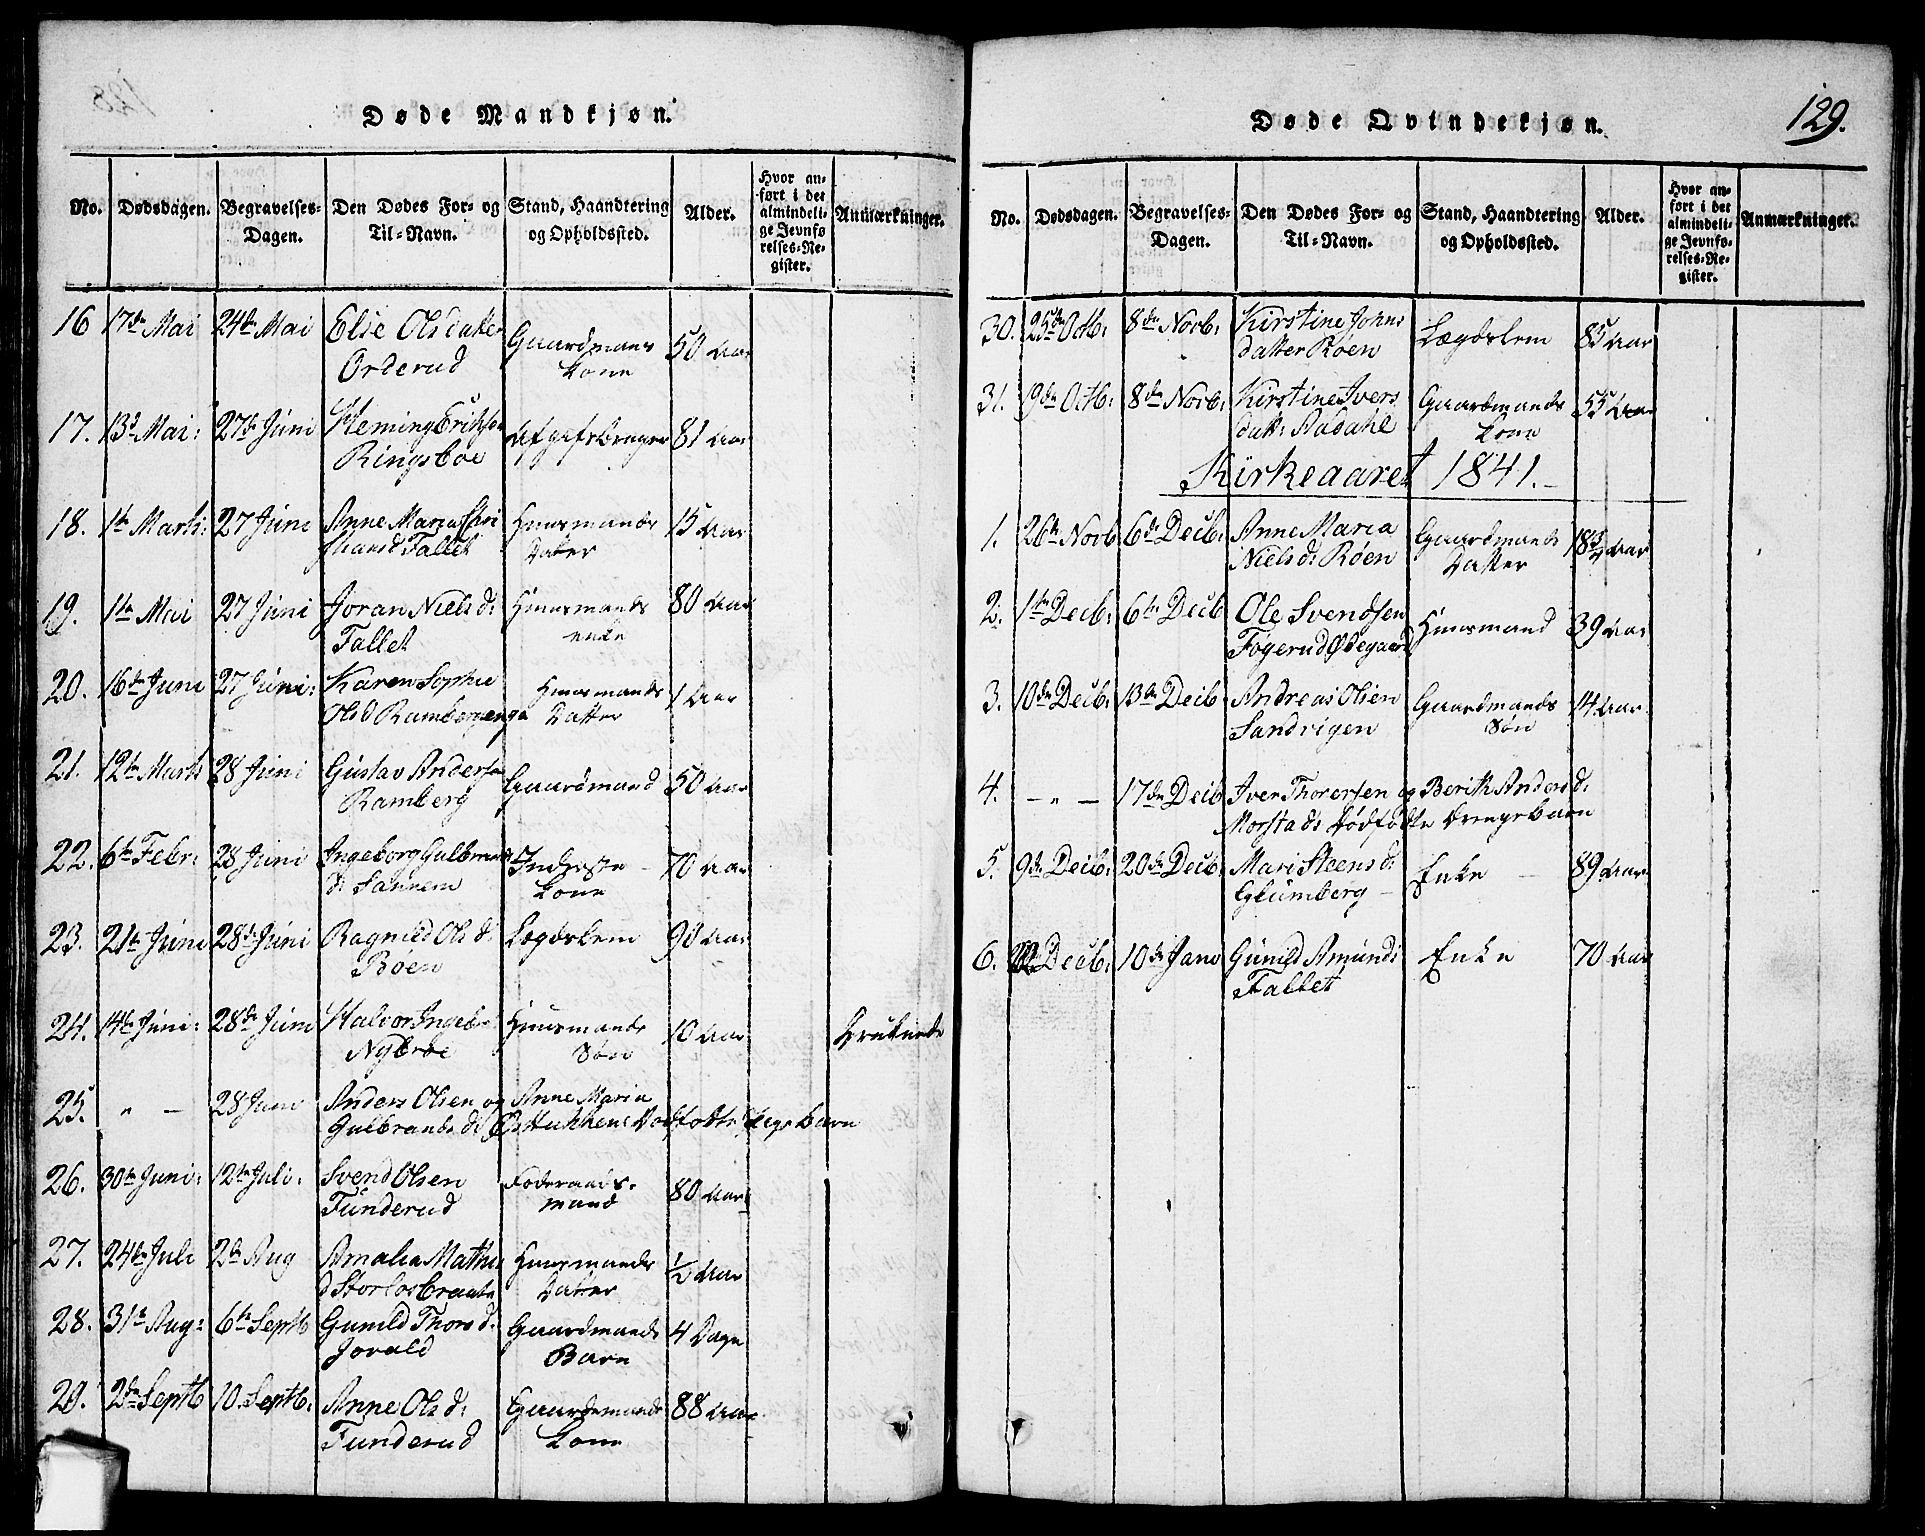 Døde Mandkjøn.
No. Dødsdagen. Begravelses-Dagen. Den Dødes For- og Til-Navn. Stand, Haandtering og Opholdssted. Alder. Hvor anført i det almindelige Jevnførelses-Register. Anmærkninger.
16 17de Mai 24de Mai Elie Olsdatter Gaardmans 50 Aar
Orderud Kone
17. 13de Mai: 27de Juni Fleming Erikse Afgifsbruger 81 Aar
Ringsboe
18. 1te Marts: 27 Juni Anne Maria Chri Huusmands 15 Aar
stiansd Fallet Datter
19. 1te Mai 27 Juni Joran Niels d: Huusmands 80 Aar
Fallet enke
20. 16de Juni 27 Juni: Karen Sophie Huusmands 1 Aar
Olsd Rambergenga Datter
21. 12te Marts 28 Juni Gustav Anderse Gaardmand 50 Aar
Ramberg
22. 6te Febr: 28 Juni Ingeborg Gulbrands Inderste 70 Aar
d: Sannem Kone
23. 21te Juni 28de Juni Ragnild Ols d: Lægdslem 90 Aar
Roen
24. 14de Juni: 28de Juni Halvor Ingebr: Huusmands 10 Aar Druknede
Nybroe Søn
25. " — 28 Juni Anders Olsen og Anne Maria
Gulbrands d: Dødfødte Pigebarn
26. 30te Juni: 12te Juli: Svend Olsen Føderaads- 80 Aar
Funderud mand
27. 24de Juli 2de Aug Amalia Mathi Huusmands ½ Aar
d Storlosbraate Datter
28. 31te Aug: 6te Septb Gunild Thors d: Gaardmands 4 Dage
Jorald Barn
29. 2de Septb 10. Septb: Anne Ols d: Gaardemands 88 Aar
Funderud Kone
129.
Døde Qvindekjøn.
No. Dødsdagen. Begravelses-Dagen. Den Dødes For- og Til-Navn. Stand, Haandtering og Opholdssted. Alder. Hvor anført i det almindelige Jevnførelses-Register. Anmærkninger.
30. 25de Octb: 8de Novb: Kirstine Johns Lægdslem 85 Aar
datter Roen
31. 9de Octb: 8de Novb: Kirstine Ivers Gaardmands 55 Aar
datt: Aadahl Kone
Kirkeaaret 1841.
1. 26de Novb 6de Decb: Anne Maria Gaardmands 18¾ Aar
Niels d: Roen Datter
2. 1te Decb: 6te Decb Ole Svendsen Huusmand 39 Aar
Fogerud Ødegaard
3. 10de Decb: 13de Decb Andreas Olsen Gaardmands 14 Aar
Sandvigen Søn
4. — " — 17de Decb Iver Thorersen og Berith Anders d:
Morstads Dødfødte Drengebarn
5. 9de Decb: 20de Decb: Mari Steens d: Enke — 89 Aar
Glumberg —
6. Decb: 10de Janv Gunild Amunds Enke 70 Aar
Fallet